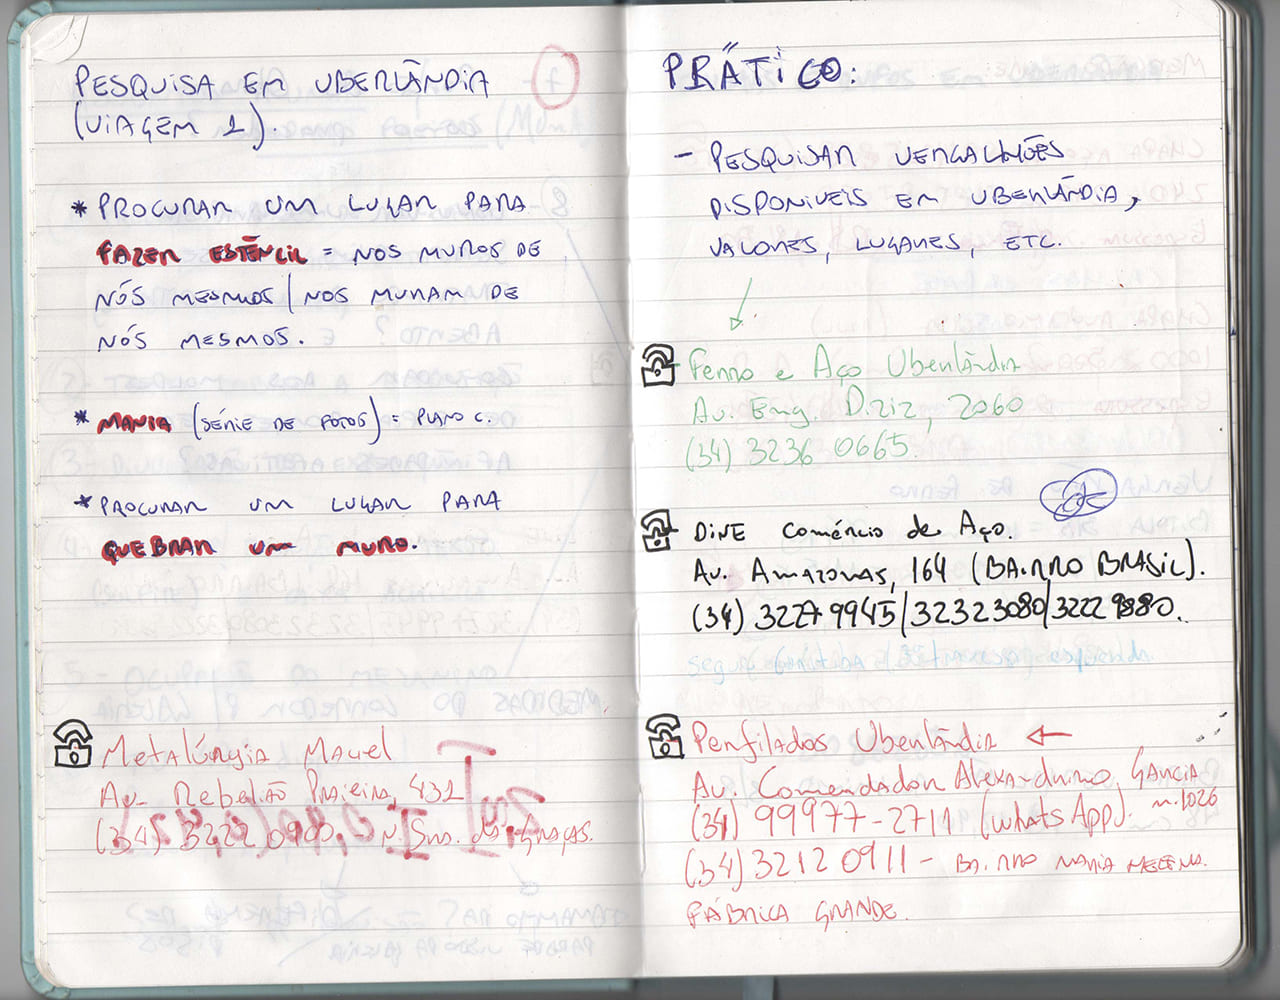 PESQUISA EM UBERLÂNDIA
(VIAGEM 1).
* PROCURAR UM LUGAR PARA
FAZER ESTÊNCIL = NOS MUROS DE
NÓS MESMOS / NOS MURAM DE
NÓS MESMOS.
* MANIA (SÉRIE DE FOTOS) = PLANO C.
* PROCURAR UM LUGAR PARA
QUEBRAR UM MURO.
Metalúrgia Maciel
Av. Rebelião Praieira, 431
(34) 3222 0900, N. Sra. das Graças.
PRÁTICO:
- PESQUISAR VERGALHÕES
DISPONÍVEIS EM UBERLÂNDIA,
VALORES, LUGARES, ETC.
Ferro e Aço Uberlândia
Av. Eng. Diniz, 2060
(34) 3236 0665.
DINE Comércio de Aço.
Av. Amazonas, 164 (BAIRRO BRASIL).
(34) 3227 9945 / 3232 3080 / 3222 9880.
esquerda
Perfilados Uberlândia ←
Av. Comendador Alexandrino GARCIA
n. 1026
(34) 99977-2711 (whatsApp).
(34) 3212 0911 - BAIRRO MARIA HELENA.
FÁBRICA GRANDE.